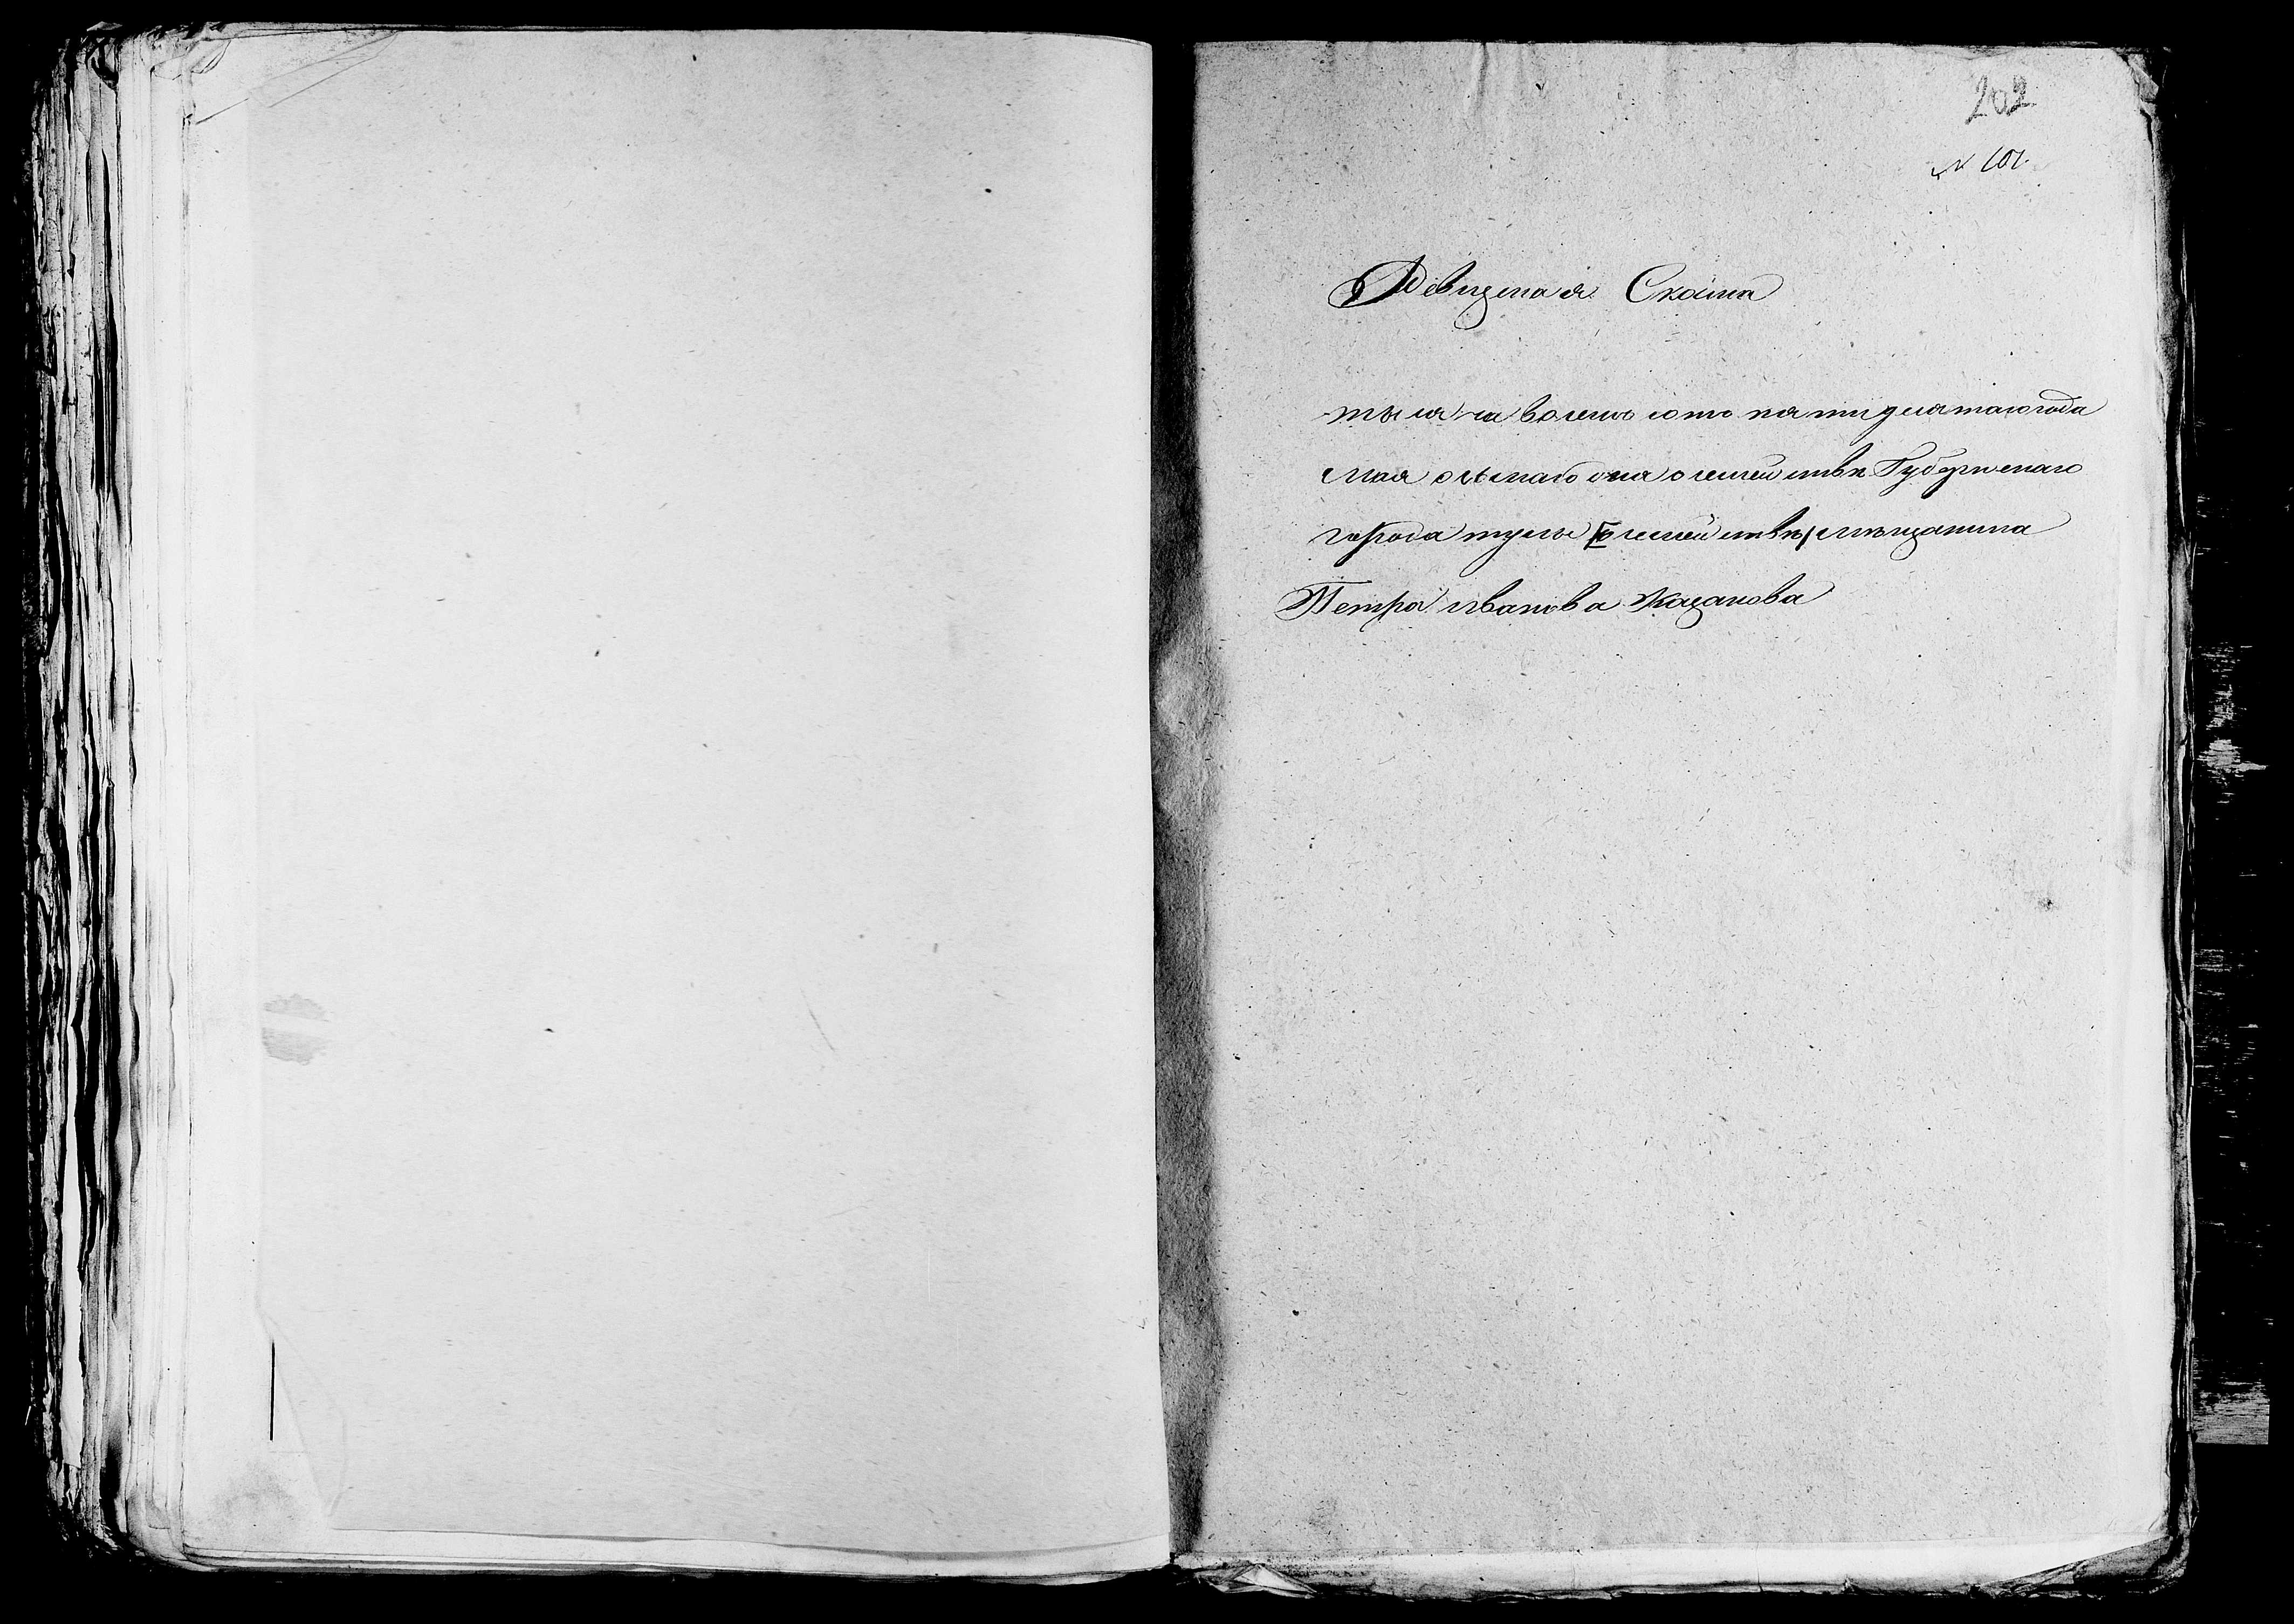 202
№ 101.
Ревизская Скаска
тысяча восемь сотъ пятидесятаго года
Мая осьмаго дня о семействѣ Губернскаго
города тулы [о семействѣ] мѣщанина
Петра иванова Казакова